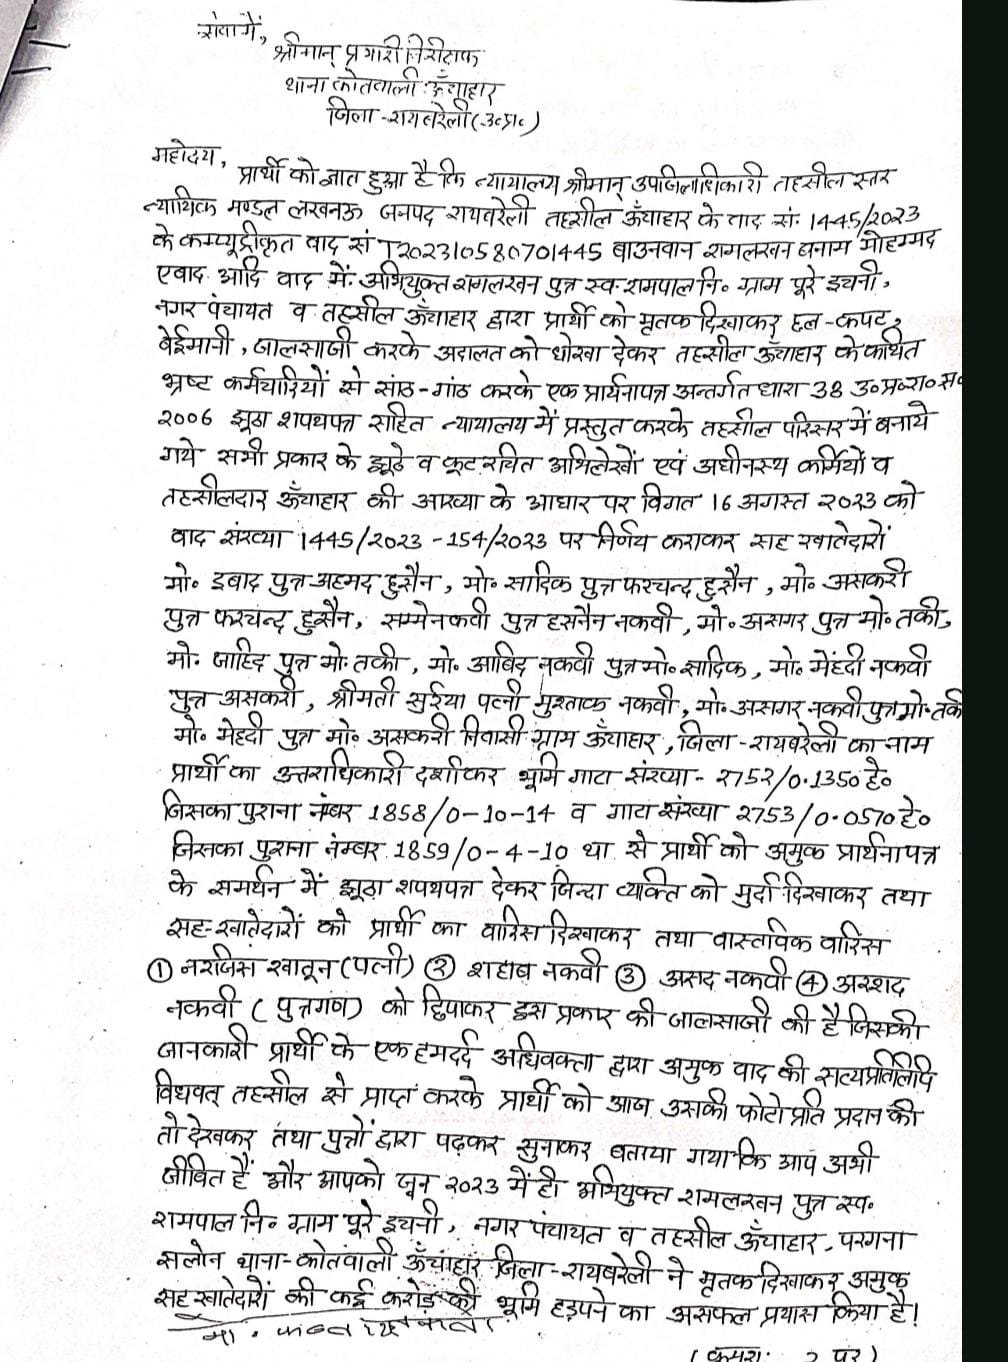 सेवा में,
श्रीमान् प्रभारी निरीक्षक
थाना कोतवाली ऊँचाहार
जिला - रायबरेली (उ०प्र०)
महोदय,
प्रार्थी को ज्ञात हुआ है कि न्यायालय श्रीमान् उपजिलाधिकारी तहसील स्तर
न्यायिक मण्डल लखनऊ जनपद रायबरेली तहसील ऊँचाहार के वाद सं० 1445/2023
के कम्प्यूटीकृत वाद सं T202310580701445 बाउनवान रामलखन बनाम मोहम्मद
एबाद आदि वाद में अभियुक्त रामलखन पुत्र स्व० रामपाल नि० ग्राम पूरे इचनी,
नगर पंचायत व तहसील ऊँचाहार द्वारा प्रार्थी को मृतक दिखाकर छल-कपट,
बेईमानी, जालसाजी करके अदालत को धोखा देकर तहसील ऊँचाहार के कथित
भ्रष्ट कर्मचारियों से सांठ-गांठ करके एक प्रार्थनापत्र अन्तर्गत धारा 38 उ०प्र०रा०स०
2006 झूठा शपथपत्र सहित न्यायालय में प्रस्तुत करके तहसील परिसर में बनाये
गये सभी प्रकार के झूठे व कूटरचित अभिलेखों एवं अधीनस्थ कर्मियों व
तहसीलदार ऊँचाहार की आख्या के आधार पर विगत 16 अगस्त 2023 को
वाद संख्या 1445/2023 - 154/2023 पर निर्णय कराकर सह खातेदारों
मो० इबाद पुत्र अहमद हुसैन, मो० सादिक पुत्र फरचन्द हुसैन, मो० असकरी
पुत्र फरचन्द हुसैन, सम्मेनकवी पुत्र हसनैन नकवी, मो० असगर पुत्र मो० तकी,
मो० जाहिद पुत्र मो० तकी, मो० आबिद नकवी पुत्र मो० सादिक, मो० मेंहदी नकवी
पुत्र असकरी, श्रीमती सुरैया पत्नी मुश्ताक नकवी, मो० असगर नकवी पुत्र मो० तकी
मो० मेहदी पुत्र मो० असकरी निवासी ग्राम ऊँचाहार, जिला - रायबरेली का नाम
प्रार्थी का उत्तराधिकारी दर्शाकर भूमि गाटा संख्या - 2752/0.1350 हे०
जिसका पुराना नंम्बर 1858/0-10-14 व गाटा संख्या 2753/0.0570 हे०
जिसका पुराना नंम्बर 1859/0-4-10 था से प्रार्थी को अमुक प्रार्थनापत्र
के समर्थन में झूठा शपथपत्र देकर जिन्दा व्यक्ति को मुर्दा दिखाकर तथा
सह-खातेदारों को प्रार्थी का वारिस दिखाकर तथा वास्तविक वारिस
① नरजिस खातून (पत्नी) ② शहाब नकवी ③ असद नकवी ④ अरशद
नकवी (पुत्रगण) को छिपाकर इस प्रकार की जालसाजी की है जिसकी
जानकारी प्रार्थी के एक हमदर्द अधिवक्ता द्वारा अमुक वाद की सत्यप्रतिलिपि
विधवत् तहसील से प्राप्त करके प्रार्थी को आज उसकी फोटो प्रति प्रदान की
तो देखकर तथा पुत्रों द्वारा पढ़कर सुनाकर बताया गया कि आप अभी
जीवित हैं और आपको जून 2023 में ही अभियुक्त रामलखन पुत्र स्व०
रामपाल नि० ग्राम पूरे इचनी, नगर पंचायत व तहसील ऊँचाहार - परगना
सलोन थाना - कोतवाली ऊँचाहार जिला - रायबरेली ने मृतक दिखाकर अमुक
सह खातेदारों की कई करोड़ की भूमि हड़पने का असफल प्रयास किया है!
(क्रमशः 2 पर)